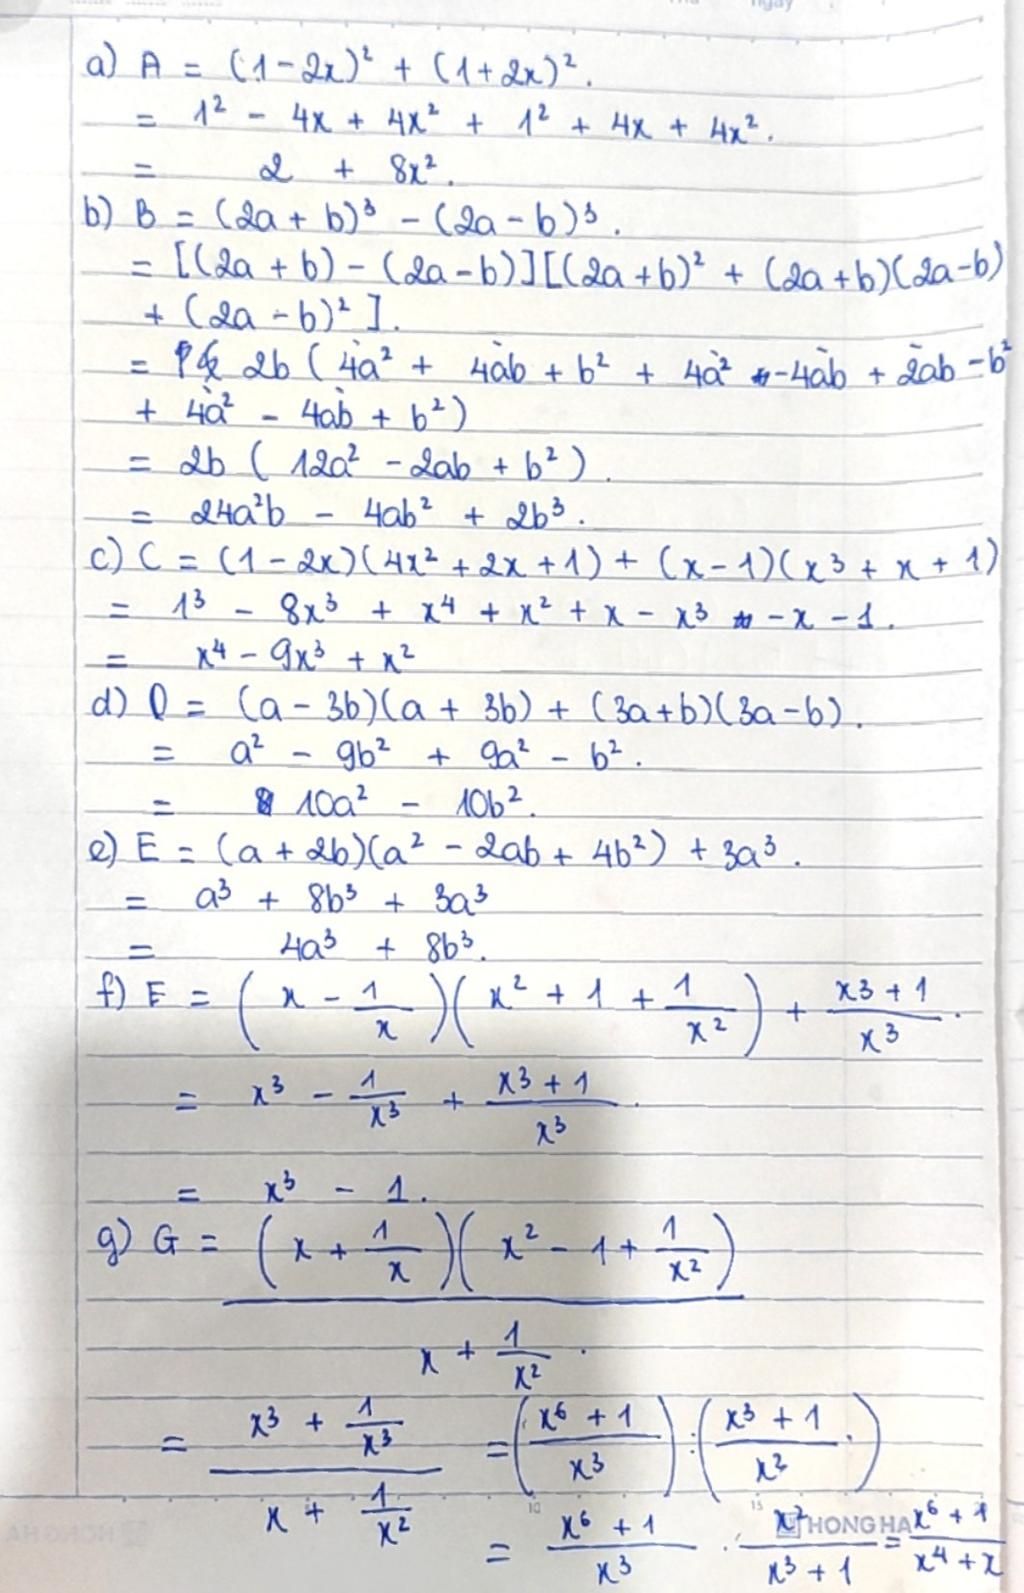 ngày
a) A = (1 - 2x)² + (1 + 2x)².
= 1² - 4x + 4x² + 1² + 4x + 4x².
= 2 + 8x².
b) B = (2a + b)³ - (2a - b)³.
= [(2a + b) - (2a - b)][(2a + b)² + (2a + b)(2a - b)
+ (2a - b)²].
= 2b (4a² + 4ab + b² + 4a² - 4ab + 2ab - b²
+ 4a² - 4ab + b²)
= 2b (12a² - 2ab + b²).
= 24a²b - 4ab² + 2b³.
c) C = (1 - 2x)(4x² + 2x + 1) + (x - 1)(x³ + x + 1)
= 1³ - 8x³ + x⁴ + x² + x - x³ - x - 1.
= x⁴ - 9x³ + x²
d) D = (a - 3b)(a + 3b) + (3a + b)(3a - b).
= a² - 9b² + 9a² - b².
= 10a² - 10b².
e) E = (a + 2b)(a² - 2ab + 4b²) + 3a³.
= a³ + 8b³ + 3a³
= 4a³ + 8b³.
f) E = (x - 1/x)(x² + 1 + 1/x²) + (x³ + 1)/x³.
= x³ - 1/x³ + (x³ + 1)/x³.
= x³ - 1.
g) G = (x + 1/x)(x² - 1 + 1/x²) / (x + 1/x²).
= (x³ + 1/x³) / (x + 1/x²) = ((x⁶ + 1)/x³) : ((x³ + 1)/x².)
= (x⁶ + 1)/x³ . x²/(x³ + 1) = (x⁶ + 1)/(x⁴ + x)
HONG HA 10 15 HONG HA